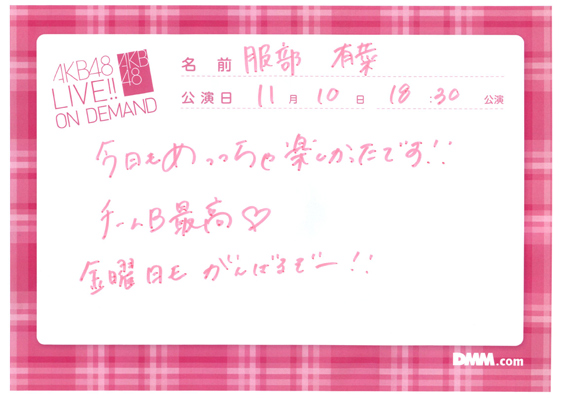 AKB48
LIVE!!
ON DEMAND
AKB
48
名前 服部 有菜
公演日 11月 10日 18:30 公演
今日もめっちゃ楽しかったです!!
チームB最高♡
金曜日もがんばるぞー!!
DMM.com